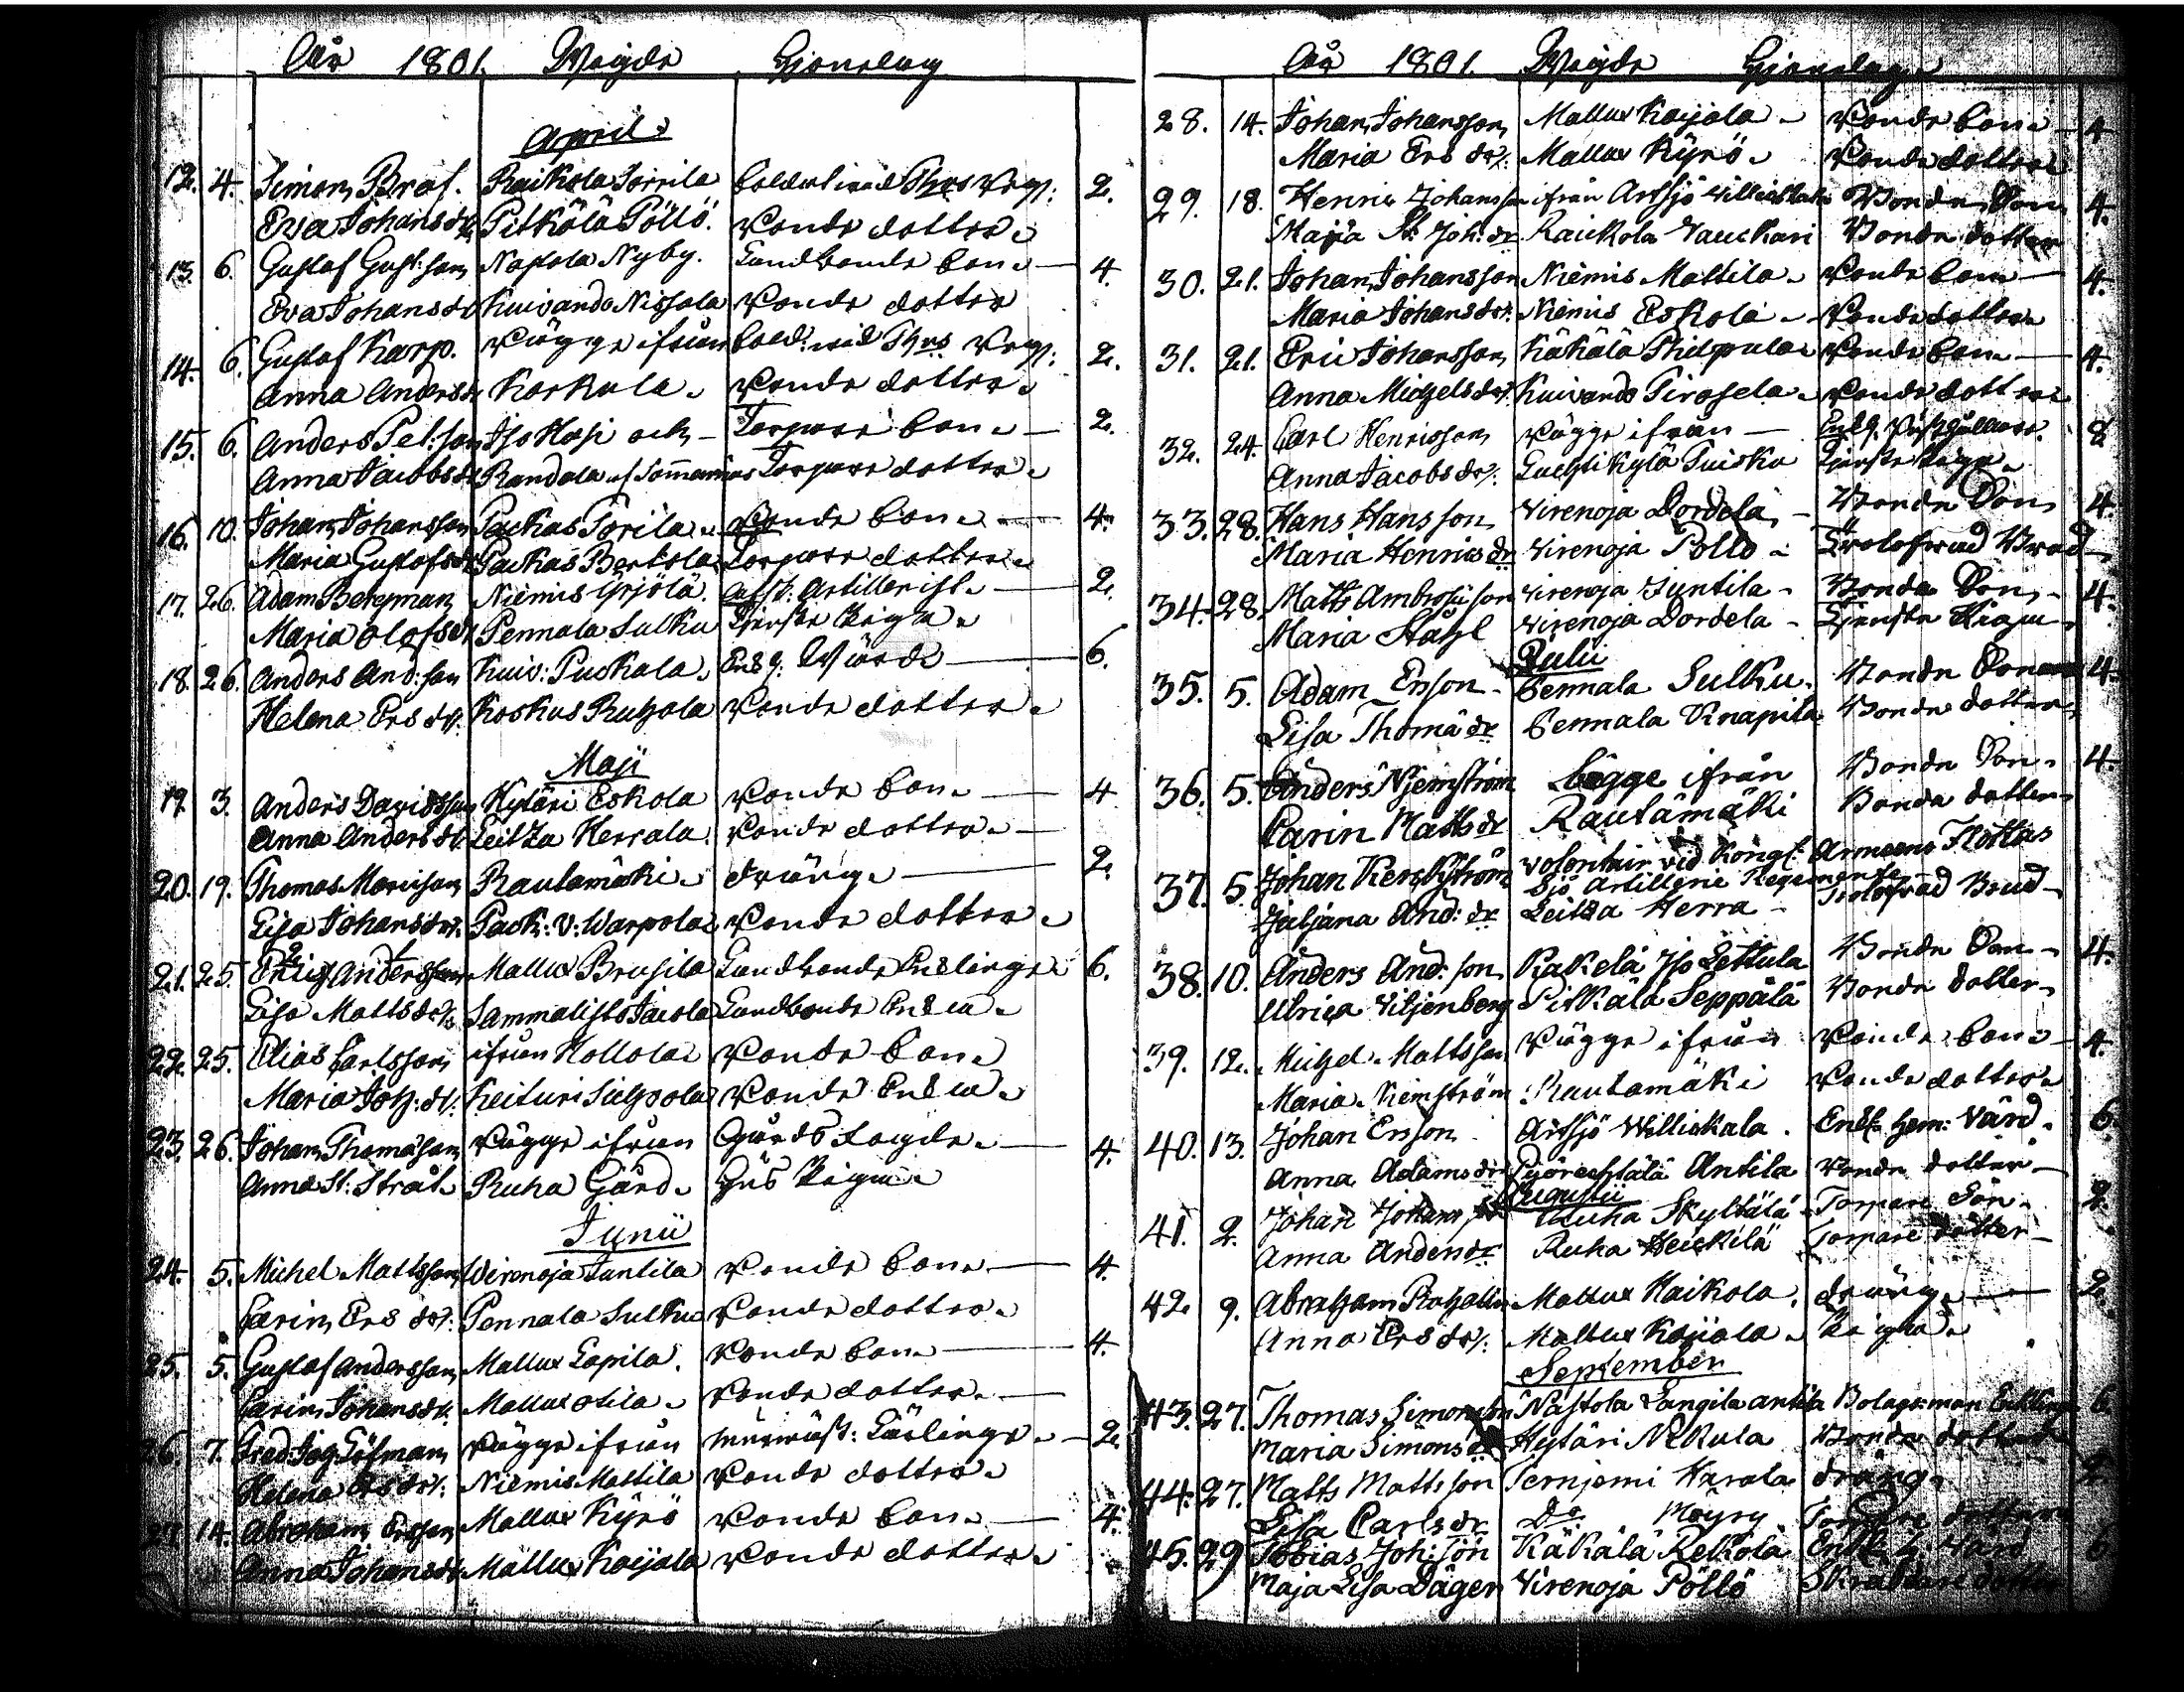 År 1801. Wigde Hjonelag
April
12. 4. Simon Braf. Raikola Sorrila Soldat wid Thus Reg: 2.
Eva Johansdr. Pitkälä Pöllö. Bonde dotter.
13. 6. Gustaf Gust:son Nastola Nyby. Landbonde Son. 4.
Eva Johansdr Kuivando Nissola Bonde dotter
14. 6. Gustaf Karp. Bägge ifrån Sold: wid Thus Reg: 2.
Anna Andersdr Korkula. Bonde dotter.
15. 6. Anders Pet:son Iso Hasi och Torpare Son. 2.
Anna Jacobsdr Randala af Sommarnäs Torpare dotter.
16. 10. Johan Johansson Packas Torila. Bonde Son. 4.
Maria Gustafsdr Packas Bertola Torpare dotter.
17. 26. Adam Bergman Niemis Yrjölä. Afsk: Artillerist. 2.
Maria Olofsdr Pennala Sulku Tjenste Piga.
18. 26. Anders And:son Kuiv: Puskala. Enkl: Wärde 6.
Helena Ersdr. Koskus Ruhala Bonde dotter.
Maji
19. 3. Anders Davidsson Hytäri Eskola Bonde Son. 4
Anna Andersdr. Leitza Herrala. Bonde dotter.
20. 19. Thomas Marcisson Rautamäki. Dräng. 2.
Lisa Johansdr. Pack: V: Warpola Bonde dotter.
21. 25. Eric Andersson Mallux Brusila Landbonde Enkling 6.
Lisa Mattsdr. Sammalisto Jacola Landbonde Enka.
22. 25. Elias Carlsson ifrån Hollola Bonde Son.
Maria Joh:dr. Keituri Sielpola Bonde Enka.
23. 26. Johan Thomasson Bägge ifrån Gårds Fogde. 4.
Anna St: Stråt. Ruha Gård. Hus Piga.
Junii
24. 5. Michel Mattsson Wirenoja Juntila Bonde Son. 4.
Carin Ersdr. Pennala Sulku Bonde dotter.
25. 5. Gustaf Andersson Mallux Lapila. Bonde Son. 4.
Carin Johansdr. Mallux Otila. Bonde dotter.
26. 7. Fred: Löfman Bägge ifrån Lärlinge. 2.
Helena Ersdr. Niemis Mattila Bonde dotter.
27. 14. Abraham Ersson Mallux Kyrö Bonde Son. 4.
Anna Johansdr. Mallux Koijola Bonde dotter.
År 1801. Wigde Hjonelag
28. 14. Johan Johansson Mallux Koijola Bonde Son. 4
Maria Ersdr. Mallux Kyrö. Bonde dotter
29. 18. Henric Johansson ifrån Artsjö Williskala Bonde Son. 4.
Maja St: Joh:dr Raickola Vauckari Bonde dotter
30. 21. Johan Johansson Niemis Mattila. Bonde Son 4.
Maria Johansdr. Niemis Eskola. Bonde dotter
31. 21. Eric Johansson Käkälä Philpula Bonde Son. 4.
Anna Michelsdr. Kuivando Pirosela. Bonde dotter
32. 24. Carl Henricsson Bägge ifrån Enkl. 2
Anna Jacobsdr. Luchtikylä Puisku Tjenste Piga.
33. 28. Hans Hansson Wirenoja Dordela, Bonde Son 4.
Maria Henricsdr Wirenoja Pöllö Trolofwad Brud
34. 28. Matts Ambrosiison Wirenoja Juntila Bonde Son. 4.
Maria Ståhl Wirenoja Dordela Tjenste Piga
Julii
35. 5. Adam Erson Pennala Sulku. Bonde Son 4.
Lisa Thomædr Pennala Knapila Bonde dotter
36. 5. Anders Njemström Bägge ifrån Bonde Son. 4.
Carin Mattsdr Rautämäki Bonde dotter
37. 5. Johan Kerckström Volontair vid Kongl: Armeens Flottas
Sjö Artillerie Regemente
Juljana And:dr Leitza Herra Trolofwad Brud
38. 10. Anders And:son Käkelä Iso Lettula Bonde Son 4.
Ulrica Liljenberg Pitkälä Seppälä Bonde dotter
39. 12. Michel Mattsson Bägge ifrån Bonde Son 4.
Maria Niemström Rautamäki Bonde dotter
40. 13. Johan Erson Artsjö Williskala. Enkl. hem: Värd. 6.
Anna Adamsdr Pyörechtälä Antila Bonde dotter
Augustii
41. 2. Johan Johansson Ruha Skyltälä Torpare Son. 2.
Anna Andersdr Ruha Heickilä Torpare dotter
42. 9. Abraham Rohallin Mallux Haikola. Dräng. 2.
Anna Ersdr. Mallux Koijola. Piga.
September
43. 27. Thomas Simonsson Nastola Langila Antila Bolagsman Enkling 6.
Maria Simonsdr Hytäri Nikula Bonde dotter
44. 27. Matts Mattsson Pernjemi Harola Dräng. 2.
Lisa Carlsdr Do Moyry Torpare dotter
45. 29. Tobias Joh:son Käkälä Rekola Enkl. h: Värd 6
Maja Lisa Däger Wirenoja Pöllö Skräddare dotter